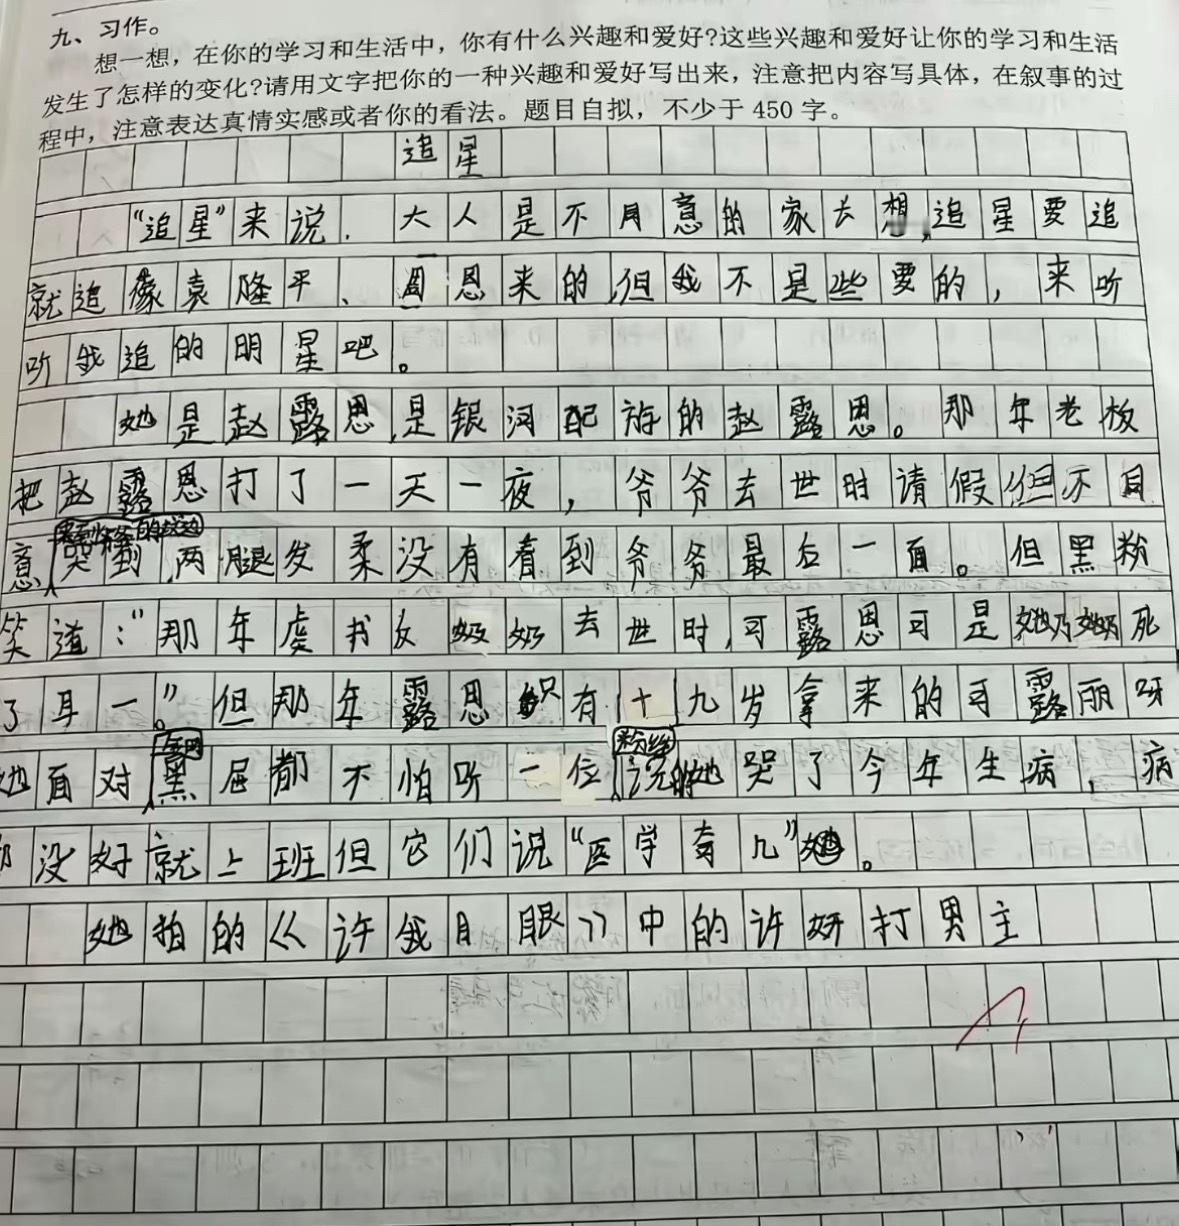 九、习作。
想一想，在你的学习和生活中，你有什么兴趣和爱好?这些兴趣和爱好让你的学习和生活
发生了怎样的变化?请用文字把你的一种兴趣和爱好写出来，注意把内容写具体，在叙事的过
程中，注意表达真情实感或者你的看法。题目自拟，不少于 450 字。
追星
“追星”来说．大人是不月意的家去想，追星要追
就追像袁隆平、周恩来的，但我不是些要的，来听
听我追的明星吧。
她是赵露思，是银河配游的赵露思。那年老板
把赵露思打了一天一夜，爷爷去世时请假但不同
意，哭到，两腿发柔没有看到爷爷最后一面。但黑粉
笑道：“那年虞书女奶奶去世时，可露思可是她奶奶死
了耳一。”但那年露思只有十九岁拿来的可露丽呀
她面对黑届都不怕听一位粉丝说她哭了今年生病，病
都没好就上班但它们说“医学奇几”她。
她拍的《许我月眼》中的许妍打男主